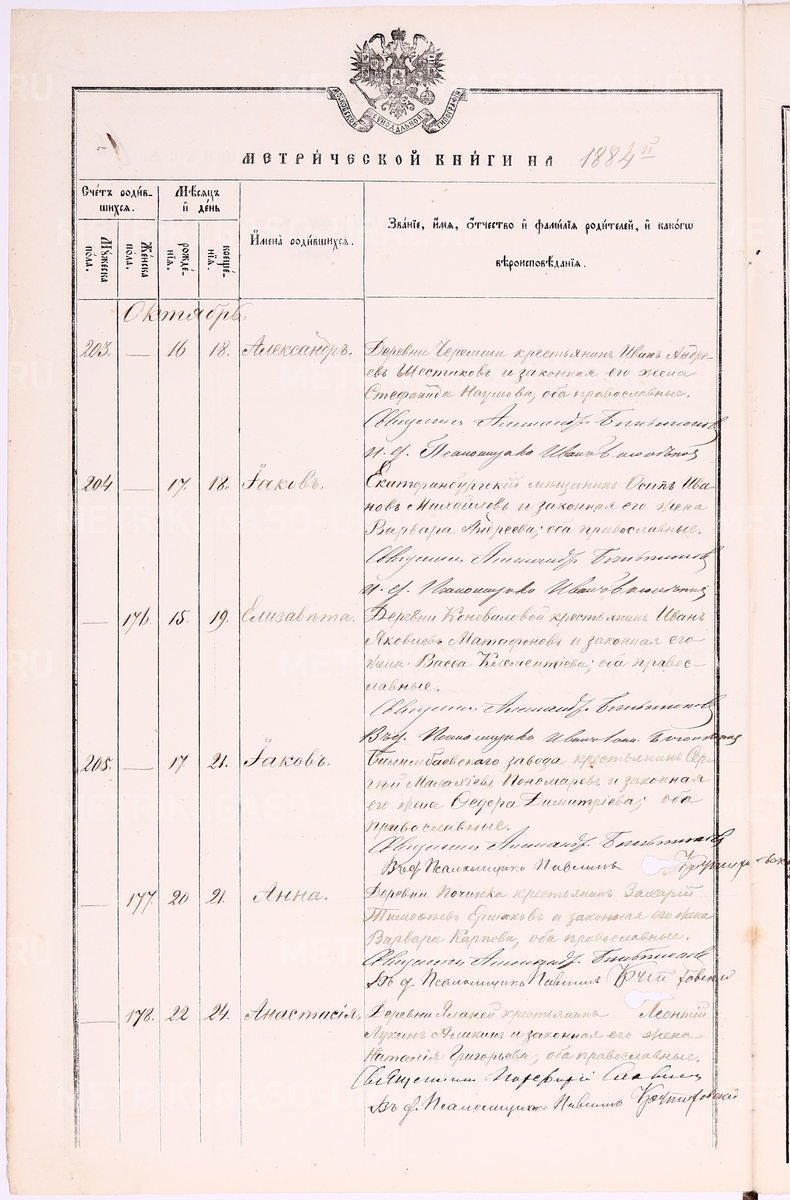 МОСКОВСКОЙ СѴНОДАЛЬНОЙ ТИПОГРАФІИ
МЕТРИ́ЧЕСКОЙ КНИ́ГИ НА 1884 й
Сче́тъ роди́вшихся.
Мѣ́сяцъ и де́нь
Имена̀ роди́вшихся.
Зва́ніе, и́мя, ѻ́тчество и фами́лія роди́телей, и како́гѡ вѣроисповѣ́данія.
Мꙋ́жеска по́ла.
Же́нска по́ла.
рожде́нія.
креще́нія.
Октябрь.
203. — 16 18. Александръ. Деревни Черемши крестьянинъ Иванъ Андре-
евъ Шестаковъ и законная его жена
Стефанида Наумова, оба православные.
Священникъ Александръ
И. д. Псаломщика Иванъ
204 — 17. 18. Іаковъ. Екатеринбургскій мѣщанинъ Осипъ Ива-
новъ Михайловъ и законная его жена
Варвара Андреева; оба православные.
Священникъ Александръ
И. д. Псаломщика Иванъ
— 176. 15. 19. Елизавета. Деревни Коноваловой крестьянинъ Иванъ
Яковлевъ Матафоновъ и законная его
жена Васса Климентіева; оба право-
славные.
Священникъ Александръ
Въ д. Псаломщика Иванъ
205. — 17 21. Іаковъ. Билимбаевскаго завода крестьянинъ Сер-
гій Малахіевъ Пономаревъ и законная
его жена Ѳедора Димитріева; оба
православные.
Священникъ Александръ
Въ д. Псаломщика Павелъ
— 177. 20 21. Анна. Деревни Починка крестьянинъ Захарій
Тимоѳеевъ Ермаковъ и законная его жена
Варвара Карпова, оба православные.
Священникъ Александръ
Въ д. Псаломщика Павелъ
— 178. 22 24. Анастасія. Деревни крестьянинъ Леонтій
Лукинъ Аликинъ и законная его жена
Наталія Григорьева, оба православные.
Священникъ Порфирій Славнинъ
Въ д. Псаломщика Павелъ